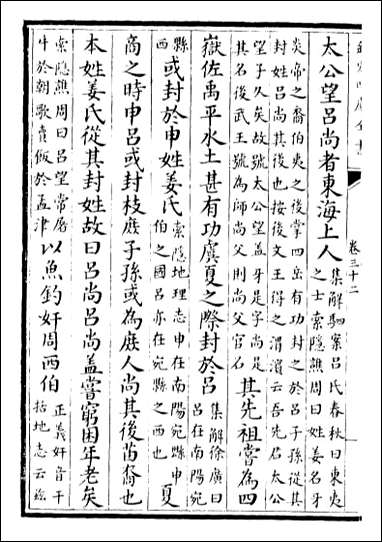 卷三十二
太公望呂尚者東海上人
集解駰案呂氏春秋曰東夷
之士索隱譙周曰姓姜名牙
炎帝之裔伯夷之後掌四岳有功封之於呂子孫從其
封姓呂尚其後也按後文王得之渭濱云吾先君太公
望子久矣故號太公望蓋牙是字尚是
其名後武王號為師尚父則尚父官名
其先祖嘗為四
嶽佐禹平水土甚有功虞夏之際封於呂
集解徐廣曰
呂在南陽宛
縣
西
或封於申姓姜氏
索隱地理志申在南陽宛縣申
伯之國呂亦在宛縣之西也
夏
商之時申呂或封枝庶子孫或為庶人尚其後苗裔也
本姓姜氏從其封姓故曰呂尚呂尚蓋嘗窮困年老矣
索隱譙周曰呂望常屠
牛於朝歌賣飯於孟津
以魚釣奸周西伯
正義奸音干
括地志云茲